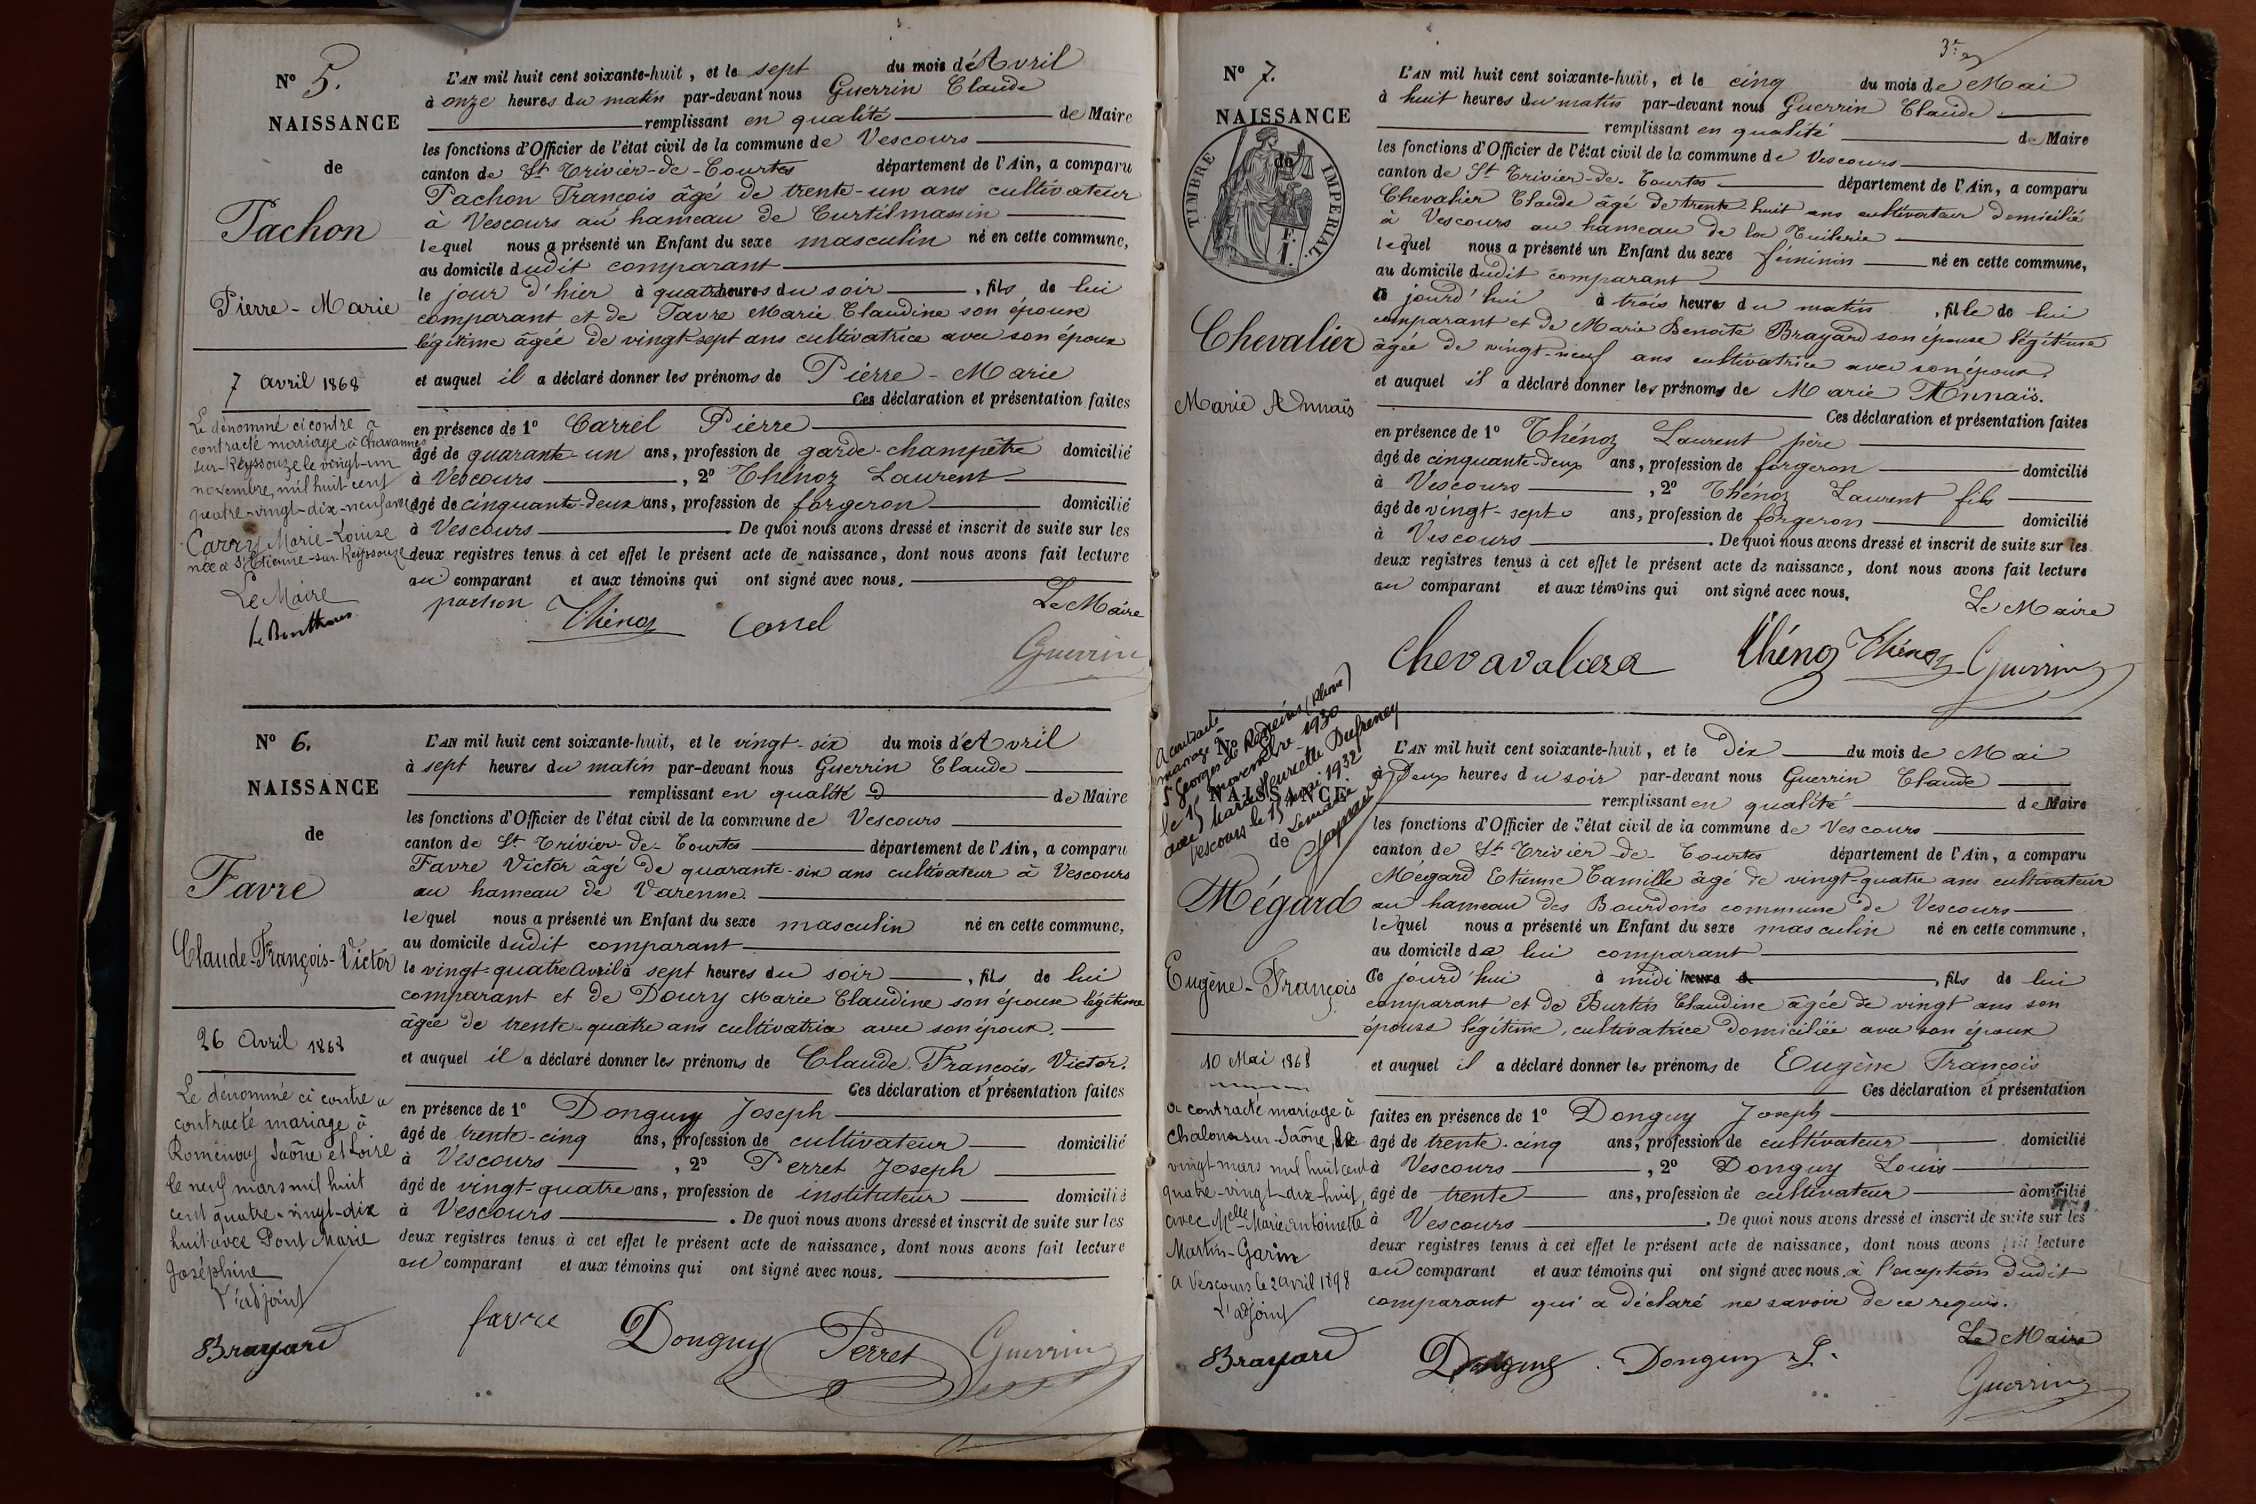 N° 5.
NAISSANCE
de
Pachon
Pierre - Marie
7 avril 1868
Le dénommé ci contre a
contracté mariage à Chavannes
sur-Reyssouze le vingt-un
novembre, mil huit cent
quatre-vingt-dix-neuf avec
Carry Marie-Louise
née à St Etienne-sur-Reyssouze
Le Maire
L'AN mil huit cent soixante-huit, et le sept du mois d'Avril
à onze heures du matin par-devant nous Guerrin Claude
remplissant en qualité de Maire
les fonctions d'Officier de l'état civil de la commune de Vescours
canton de St Trivier-de-Courtes département de l'Ain, a comparu
Pachon François âgé de trente-un ans cultivateur
à Vescours au hameau de Curtilmassin
lequel nous a présenté un Enfant du sexe masculin né en cette commune,
au domicile dudit comparant
le jour d'hier à quatre heures du soir, fils de lui
comparant et de Favre Marie Claudine son épouse
légitime âgée de vingt-sept ans cultivatrice avec son époux
et auquel il a déclaré donner les prénoms de Pierre - Marie
Ces déclaration et présentation faites
en présence de 1° Carrel Pierre
âgé de quarante-un ans, profession de garde-champêtre domicilié
à Vescours, 2° Thénoz Laurent
âgé de cinquante-deux ans, profession de forgeron domicilié
à Vescours. De quoi nous avons dressé et inscrit de suite sur les
deux registres tenus à cet effet le présent acte de naissance, dont nous avons fait lecture
au comparant et aux témoins qui ont signé avec nous.
pachon Thénoz Carrel Le Maire
Guerrin
N° 6.
NAISSANCE
de
Favre
Claude-François-Victor
26 Avril 1868
Le dénommé ci contre a
contracté mariage à
Romenay Saône et Loire
le neuf mars mil huit
cent quatre-vingt-dix
huit avec Pont Marie
Joséphine
L'adjoint
Brayard
L'AN mil huit cent soixante-huit, et le vingt-six du mois d'Avril
à sept heures du matin par-devant nous Guerrin Claude
remplissant en qualité de Maire
les fonctions d'Officier de l'état civil de la commune de Vescours
canton de St Trivier-de-Courtes département de l'Ain, a comparu
Favre Victor âgé de quarante-six ans cultivateur à Vescours
au hameau de Varenne.
lequel nous a présenté un Enfant du sexe masculin né en cette commune,
au domicile dudit comparant
le vingt-quatre Avril à sept heures du soir, fils de lui
comparant et de Doury Marie Claudine son épouse légitime
âgée de trente-quatre ans cultivatrice avec son époux.
et auquel il a déclaré donner les prénoms de Claude, François, Victor.
Ces déclaration et présentation faites
en présence de 1° Donguy Joseph
âgé de trente-cinq ans, profession de cultivateur domicilié
à Vescours, 2° Perret Joseph
âgé de vingt-quatre ans, profession de instituteur domicilié
à Vescours. De quoi nous avons dressé et inscrit de suite sur les
deux registres tenus à cet effet le présent acte de naissance, dont nous avons fait lecture
au comparant et aux témoins qui ont signé avec nous.
favre Donguy Perret Guerrin
3e
N° 7.
NAISSANCE
de
TIMBRE IMPERIAL
1 F.
Chevalier
Marie Annaïs
L'AN mil huit cent soixante-huit, et le cinq du mois de Mai
à huit heures du matin par-devant nous Guerrin Claude
remplissant en qualité de Maire
les fonctions d'Officier de l'état civil de la commune de Vescours
canton de St Trivier-de-Courtes département de l'Ain, a comparu
Chevalier Claude âgé de trente-huit ans cultivateur domicilié
à Vescours au hameau de la Tuilerie
lequel nous a présenté un Enfant du sexe féminin né en cette commune,
au domicile dudit comparant
ce jourd'hui à trois heures du matin, fille de lui
comparant et de Marie Benoîte Brayard son épouse légitime
âgée de vingt-neuf ans cultivatrice avec son époux.
et auquel il a déclaré donner les prénoms de Marie Annaïs.
Ces déclaration et présentation faites
en présence de 1° Thénoz Laurent père
âgé de cinquante-deux ans, profession de forgeron domicilié
à Vescours, 2° Thénoz Laurent fils
âgé de vingt-sept ans, profession de forgeron domicilié
à Vescours. De quoi nous avons dressé et inscrit de suite sur les
deux registres tenus à cet effet le présent acte de naissance, dont nous avons fait lecture
au comparant et aux témoins qui ont signé avec nous.
Le Maire
Thénoz Thénoz Guerrin
A contracté
mariage à
St Georges de Reneins (Rhône)
le 15 novembre 1930
avec Marie Dufreney
Vescours le 15 mai 1932
Le maire
N°
NAISSANCE
de
Mégard
Eugène-François
10 Mai 1868
a contracté mariage à
Chalon sur Saône, le
vingt mars mil huit cent
quatre-vingt-dix-huit
avec Melle Marie Antoinette
Martin-Garin
A Vescours le 2 avril 1898
L'adjoint
Brayard
L'AN mil huit cent soixante-huit, et le Dix du mois de Mai
à Deux heures du soir par-devant nous Guerrin Claude
remplissant en qualité de Maire
les fonctions d'Officier de l'état civil de la commune de Vescours
canton de St Trivier-de-Courtes département de l'Ain, a comparu
Mégard Etienne Camille âgé de vingt-quatre ans cultivateur
au hameau des Bourdons commune de Vescours
lequel nous a présenté un Enfant du sexe masculin né en cette commune,
au domicile de lui comparant
ce jourd'hui à midi heure d, fils de lui
comparant et de Burtin Claudine âgée de vingt ans son
épouse légitime, cultivatrice domiciliée avec son époux
et auquel il a déclaré donner les prénoms de Eugène François
Ces déclaration et présentation
faites en présence de 1° Donguy Joseph
âgé de trente-cinq ans, profession de cultivateur domicilié
à Vescours, 2° Donguy Louis
âgé de trente ans, profession de cultivateur domicilié
à Vescours. De quoi nous avons dressé et inscrit de suite sur les
deux registres tenus à cet effet le présent acte de naissance, dont nous avons fait lecture
au comparant et aux témoins qui ont signé avec nous à l'exception dudit
comparant qui a déclaré ne savoir de ce requis.
Le Maire
Donguy Donguy L. Guerrin